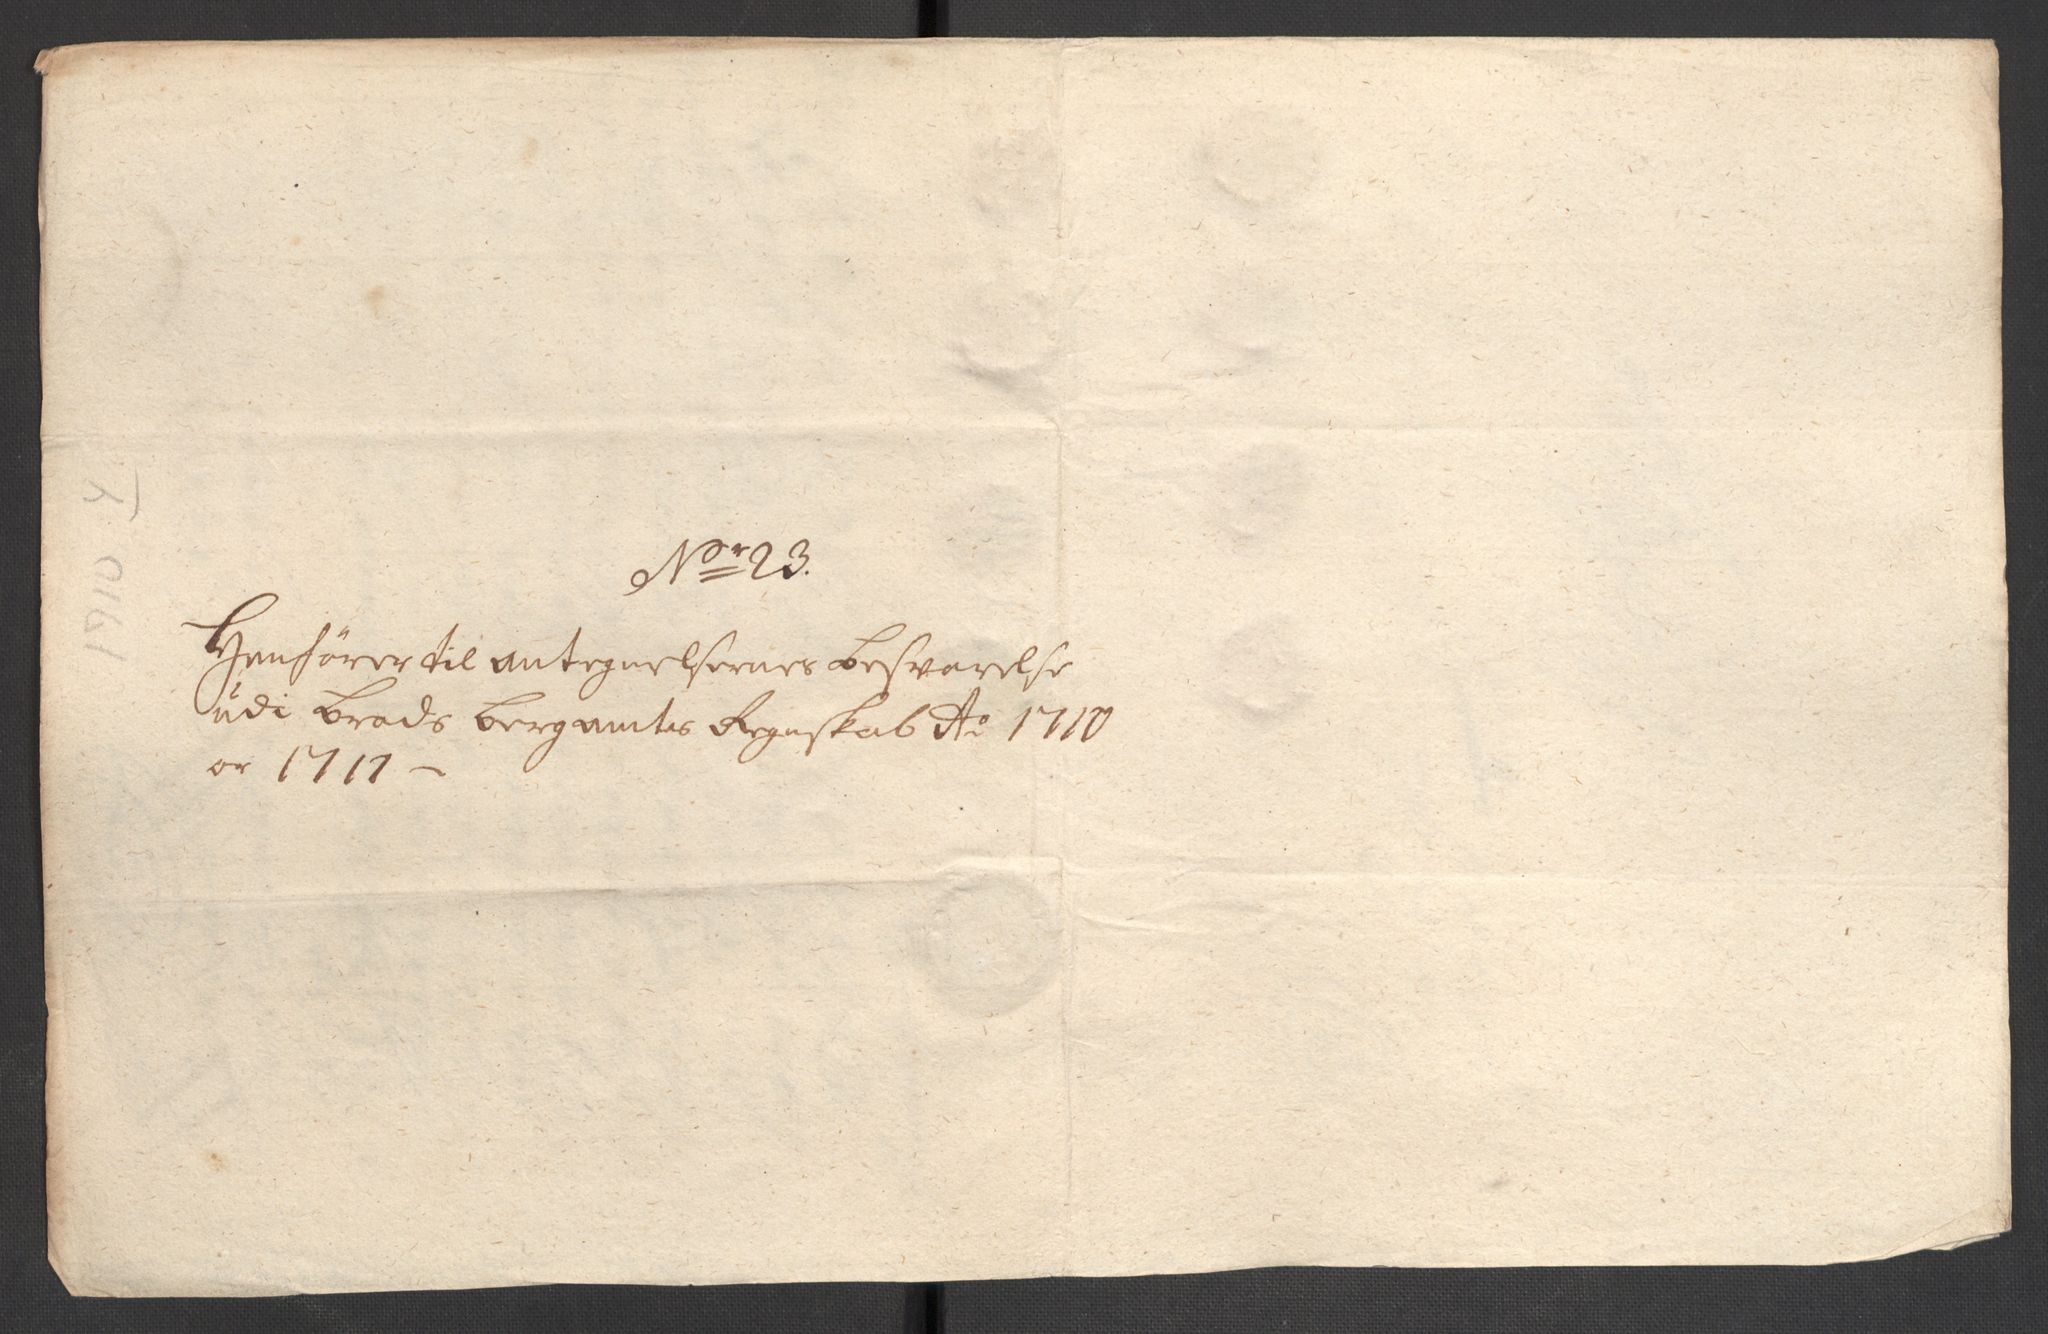 No. 23.
Henhörer til Antegnelsernes Besvarelse
udi Brads Bergamts Regnskab Ao 1710
og 1711 –
1710